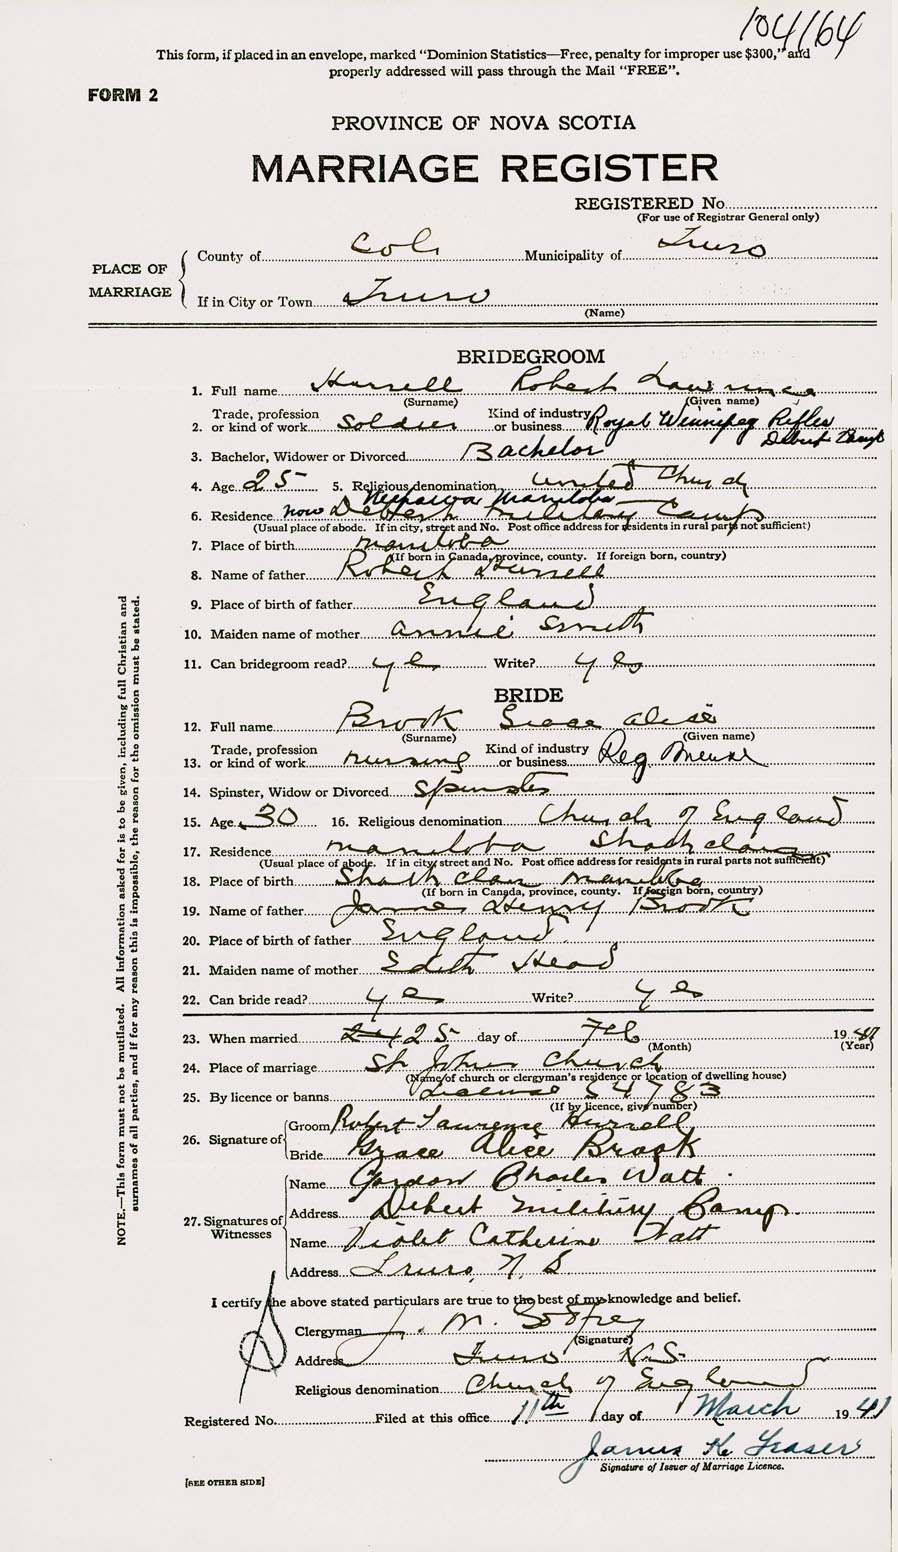 104/164
This form, if placed in an envelope, marked “Dominion Statistics—Free, penalty for improper use $300,” and
properly addressed will pass through the Mail “FREE”.
FORM 2
PROVINCE OF NOVA SCOTIA
MARRIAGE REGISTER
REGISTERED No.
(For use of Registrar General only)
PLACE OF MARRIAGE
County of Col. Municipality of Truro
If in City or Town Truro
(Name)
BRIDEGROOM
1. Full name Hurrell Robert Lawrence
(Surname) (Given name)
2. Trade, profession or kind of work Soldier Kind of industry or business Royal Winnipeg Rifles
Debert Camp
3. Bachelor, Widower or Divorced Bachelor
4. Age 25 5. Religious denomination United Church
Neepawa Manitoba
6. Residence now Debert Military Camp
(Usual place of abode. If in city, street and No. Post office address for residents in rural parts not sufficient)
7. Place of birth Manitoba
(If born in Canada, province, county. If foreign born, country)
8. Name of father Robert Hurrell
9. Place of birth of father England
10. Maiden name of mother Annie Smith
11. Can bridegroom read? yes Write? yes
BRIDE
12. Full name Brook Grace Alice
(Surname) (Given name)
13. Trade, profession or kind of work nursing Kind of industry or business Reg
14. Spinster, Widow or Divorced Spinster
15. Age 30 16. Religious denomination Church of England
17. Residence Manitoba Strathclair
(Usual place of abode. If in city, street and No. Post office address for residents in rural parts not sufficient)
18. Place of birth Strathclair Manitoba
(If born in Canada, province, county. If foreign born, country)
19. Name of father James Henry Brook
20. Place of birth of father England
21. Maiden name of mother Edith Head
22. Can bride read? yes Write? yes
23. When married 24 25 day of Feb 1941
(Month) (Year)
24. Place of marriage St Johns Church
(Name of church or clergyman’s residence or location of dwelling house)
25. By licence or banns License 54783
(If by licence, give number)
26. Signature of
Groom Robert Lawrence Hurrell
Bride Grace Alice Brook
27. Signatures of Witnesses
Name Gordon Charles Watt.
Address Debert Military Camp.
Name Violet Catherine Watt
Address Truro, N. S.
I certify the above stated particulars are true to the best of my knowledge and belief.
Clergyman J. M.
(Signature)
Address Truro N.S.
Religious denomination Church of England
Registered No. Filed at this office 11th day of March 1941
James K. Fraser
Signature of Issuer of Marriage Licence.
[SEE OTHER SIDE]
NOTE.—This form must not be mutilated. All information asked for is to be given, including full Christian and
surnames of all parties, and if for any reason this is impossible, the reason for the omission must be stated.